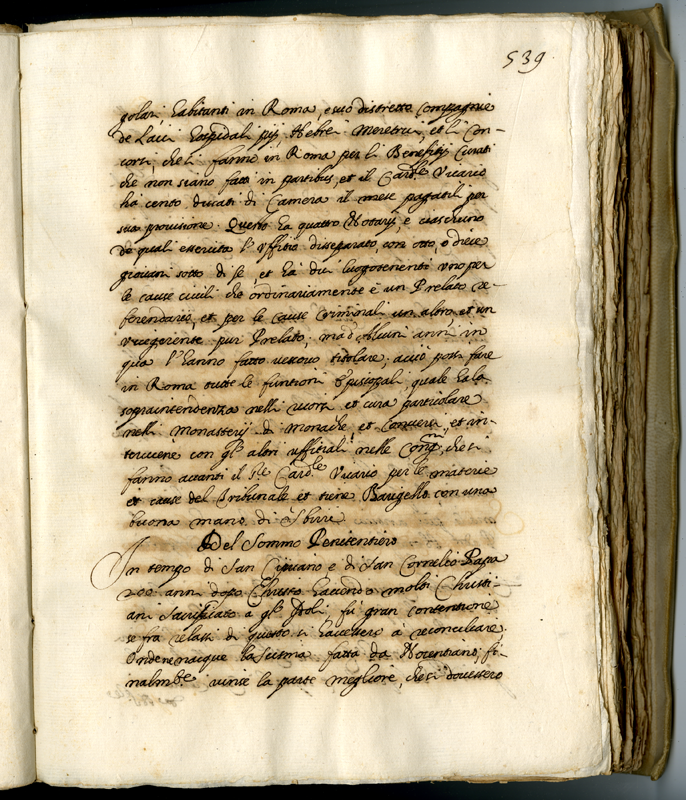 539
golari, habitanti in Roma, e suo distretto Compagnie
de Laici hospidali pij, Hebrei Meretrici, et li Con-
corsi, che si fanno in Roma per li Benefitij Curati
che non siano fatti in partibus, et il Card.le Vicario
ha cento ducati di Camera il mese pagabili per
sua provisione. Questo ha quattro Notarij, e ciascuno
de quali essercita l'uffitio disseparato, con otto, o diece
giovani sotto di se, et ha dui luogotenenti uno per
le cause civili che ordinariamente è un Prelato re-
ferendario, et per le cause Criminali un altro et un
Vicegerente pur Prelato, ma d'Alcuni anni in
qua l'hanno fatto vescovo titolare, acciò possi fare
in Roma tutte le funtioni Episcopali, quale ha la
sopraintendenza nelli et cura particolare
nelli Monasterij di Monache, et Converse, et in-
terviene con gl'altri uffitiali nelle Cong.ni, che si
fanno avanti il Card.le Vicario per le materie
et cause del Tribunale et tiene Barigello con una
buona mano di Sbirri
Del Sommo Penitentiero
In tempo di San Cipriano e di San Cornelio Papa
200 anni dopo Christo havendo molti Christi-
ani Sacrificato a gl'Idoli fù gran contentione
se fra relassi di questo si havessero à reconciliare.
Ondene nacque la scisma fatta da Noventiano, fi-
nalm.te vinse la parte megliore, che si dovessero